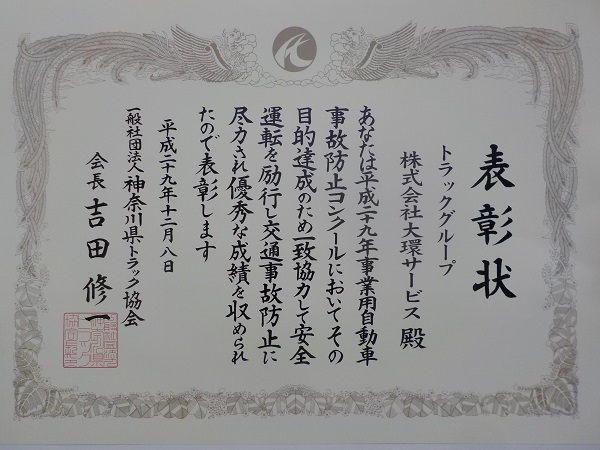 表彰状
トラックグループ
株式会社大環サービス 殿
あなたは平成二十九年事業用自動車
事故防止コンクールにおいてその
目的達成のため一致協力して安全
運転を励行し交通事故防止に
尽力され優秀な成績を収められ
たので表彰します
平成二十九年十二月八日
一般社団法人神奈川県トラック協会
会長 吉田修一